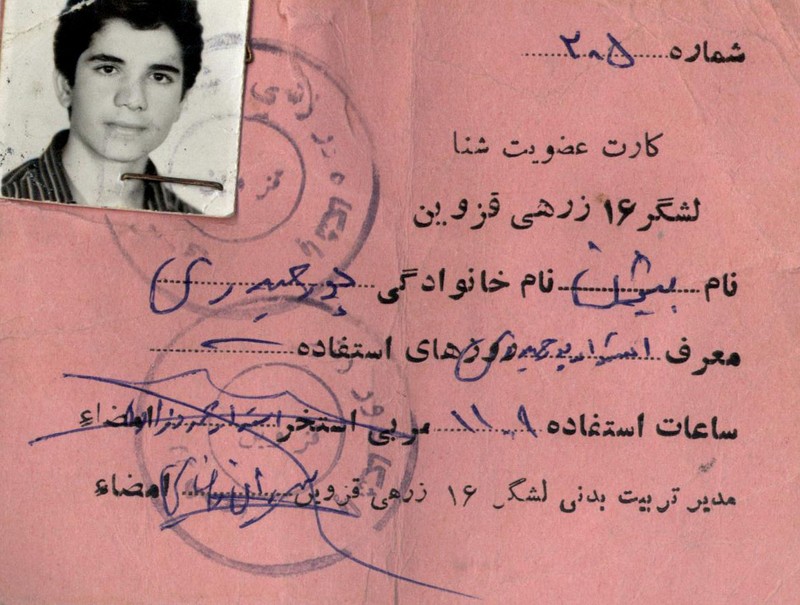 شماره ۲۰۵
کارت عضویت شنا
لشگر ۱۶ زرهی قزوین
نام بیژن نام خانوادگی پورحیدری
معرف استوار پورحیدری روزهای استفاده
ساعات استفاده ۹-۱۱ مربی استخر امضاء
مدیر تربیت بدنی لشگر ۱۶ زرهی قزوین امضاء
باشگاه ورزشی